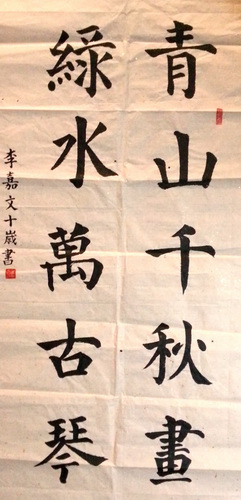 青山千秋畫
綠水萬古琴
李嘉文十歲書